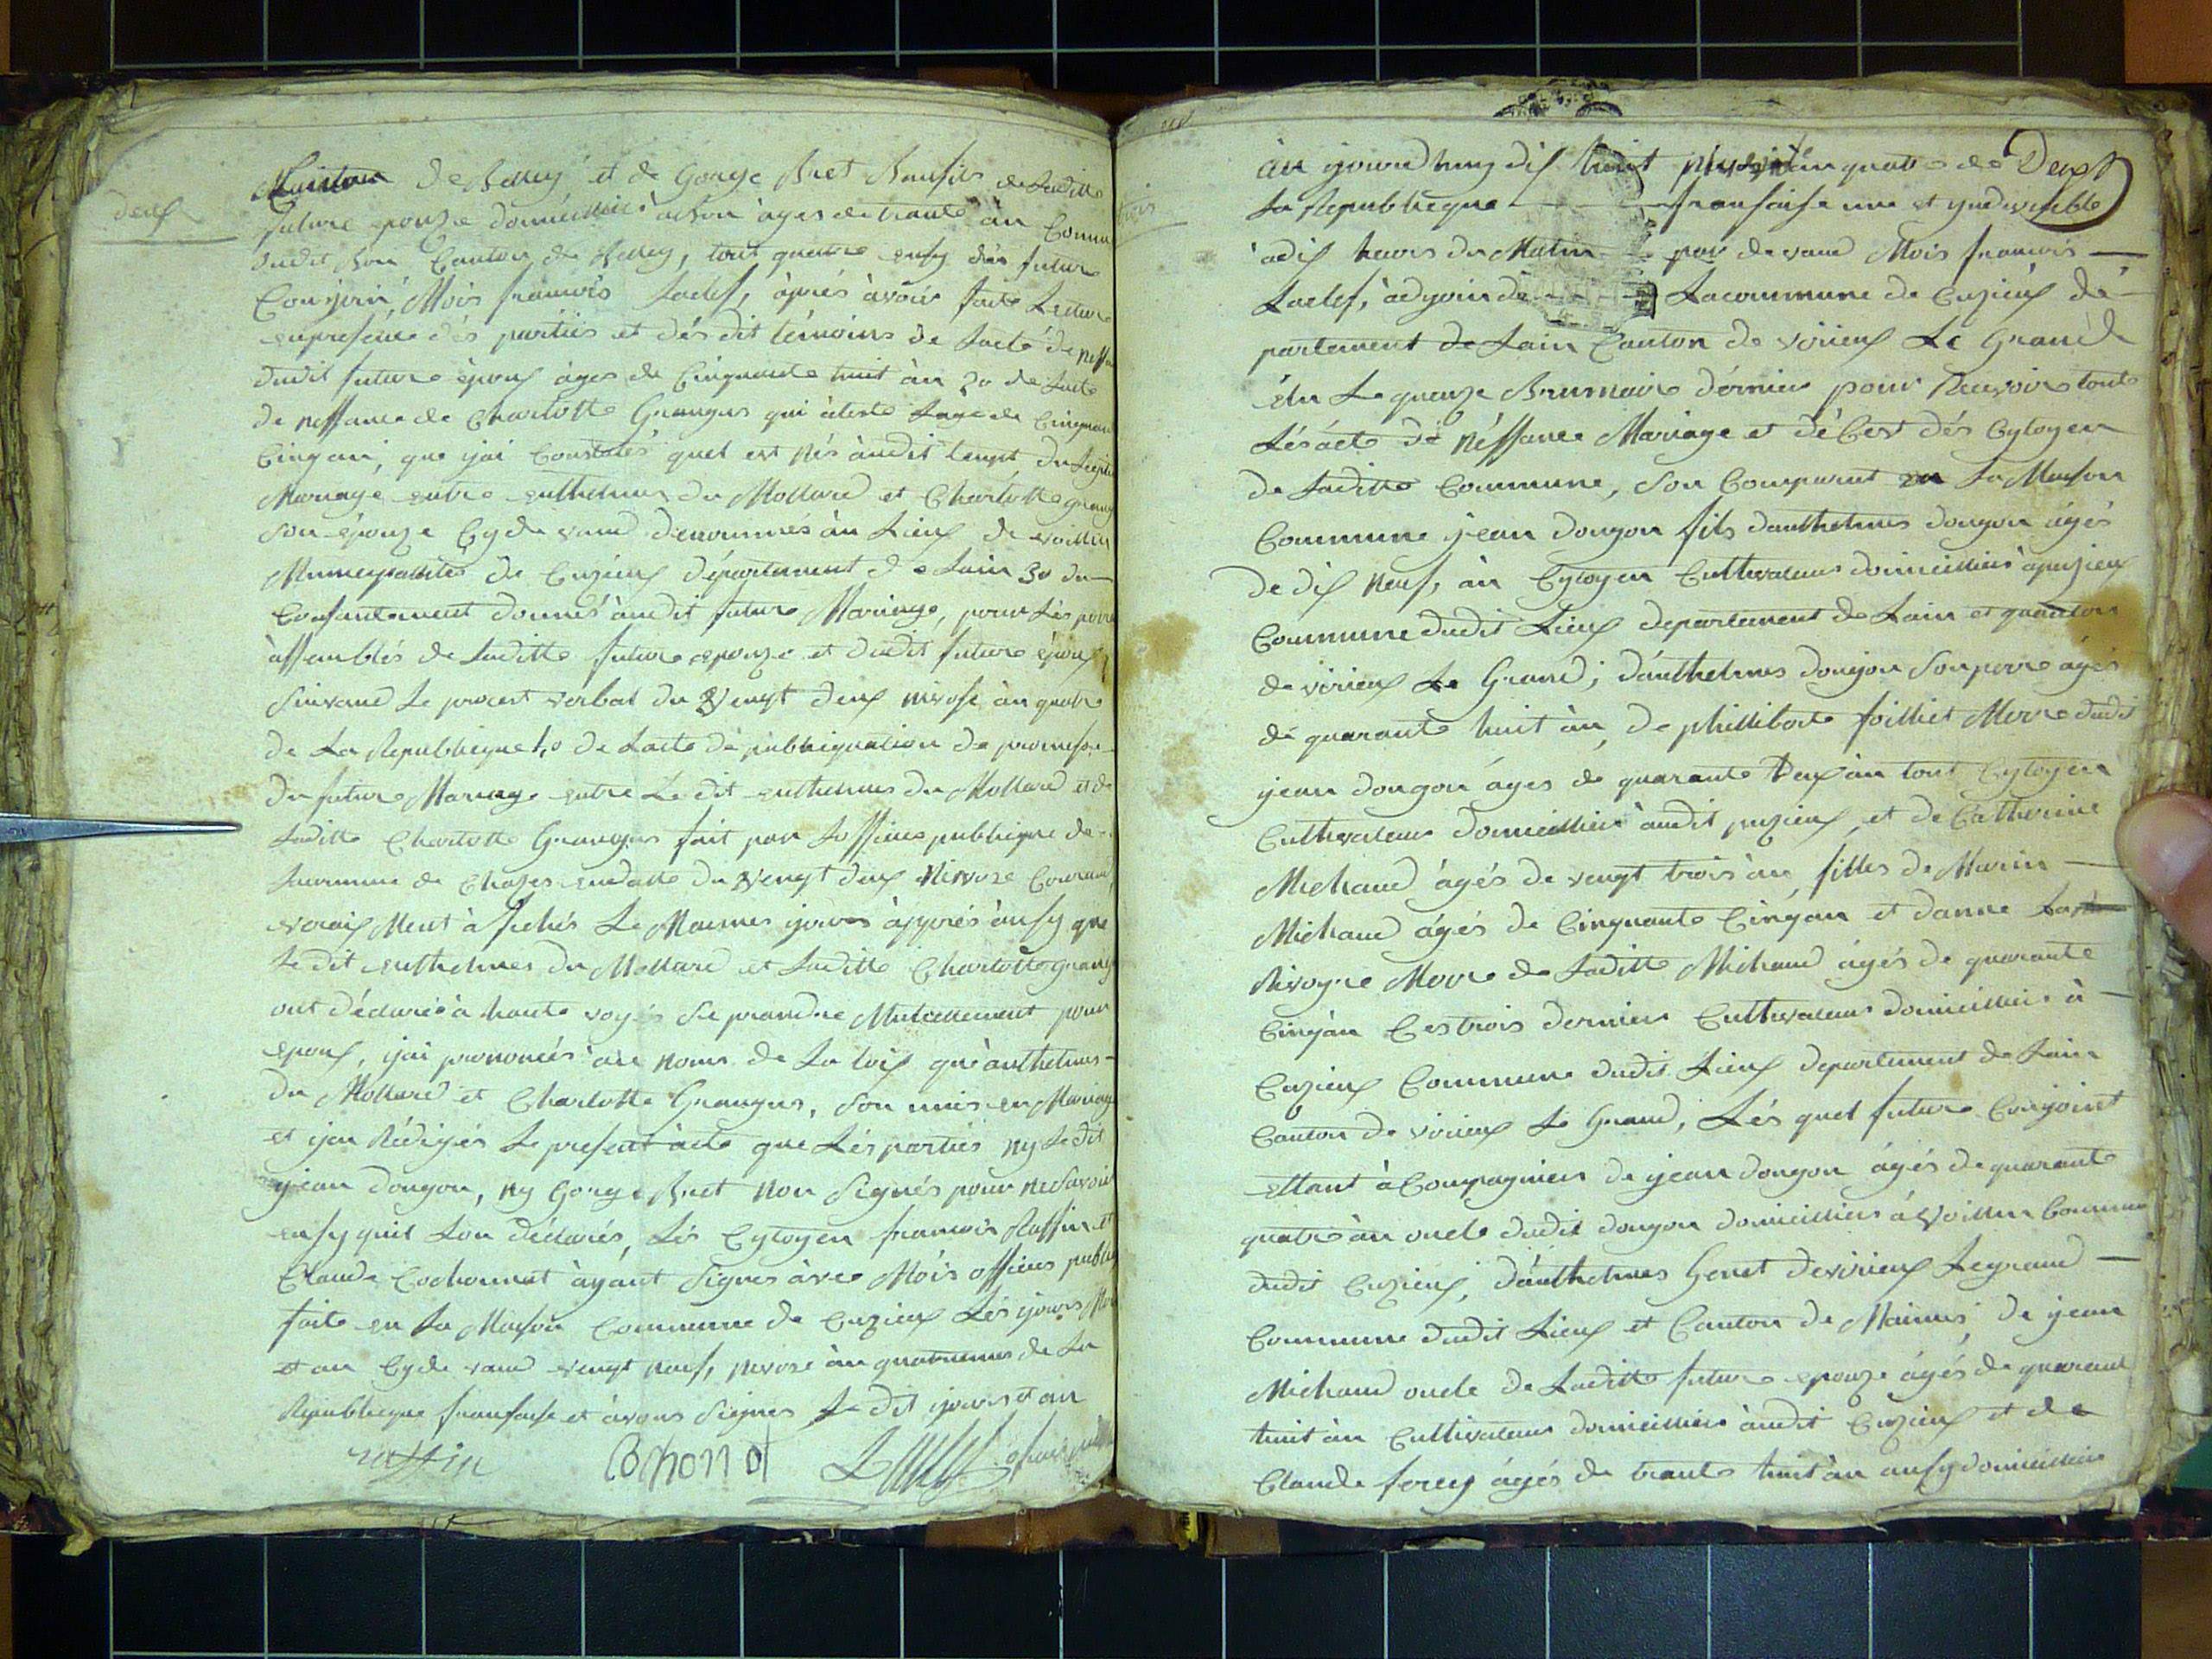 deux
Canton de Belley et de George Bret Baufils de Laditte
future epouze domicillié à Bon àges de trante àn Commu
dudit Bon Canton de Belley, tout quatre ensy dés future
Conjoin Mois francois Laclef, àprés àvoir faite Lecture
enpresence dés partiés et dés dit témoins de Lacte de
dudit future èpoux àges de Cinquante huit àn 20 de Lacte
de néssance de Charlotte Grangus qui àteste Lage de Cinquan
Cinq an, que jai Constatés quel est Nés àudit tempt
Mariage entre enthelmes du Mollard et Charlotte grang
Son épouze Cyde vand denommés àn Lieux de voillin
Municypallités de Cuzieux département de Lain 3o du
Consantement donnés àudit future Mariage, pour Lés
àssemblés de Laditte future epouze et dudit future époux
Suivand Le procest verbal du Vengt deux nivose àn quatre
de La Republieque 4o de Lacte de publiquation de promesse
du future Mariage entre Le dit enthelmes du Mollard et de
Laditte Charlotte Grangus fait par Lofficie publique de
Lacommune de Chazes endatte du Vengt deux Nivoze Courand
Ment àfichés Le Maimes jours àpprés àinsy que
Le dit enthelmes du Mollard et Laditte Charlotte grang
ont déclarés à haute voyé Se prandre Mutuellement pour
epoux, jai prononcés àu noms de La loix que àuthelmes
du Mollard et Charlotte Grangus, Son unis en Mariage
et jeu Rédigés Le present àcte que Lés partiés ny Ledit
jean dougon, ny Gorge Bret non Signés pour ne Savoir
ensy quil Lon Déclarés, Lés Cytoyen francois Raffin et
Claude Cochonnat àyànt Signes àvec Mois officies public
faite en La Maison Commune de Cuzieux Lés jours
et an Cyde vand vengt neuf, nivose àn quatriemes de La
Republieque fransaise et àvons Signes Le dit jours et an
raffin Cohonnot
trois
àu jourdhuy dix huit pluviose àn quatre de Deux
La Republieque fransaise une et yndivisible
àdix heures du Matin par devand Mois francois
Laclef, àdjoin de Lacommune de Cuzieux dé
partement de Lain Canton de virieux Le Grand
élu Le quenze Brumaire dérnier pour Recevoir toute
Lés àcte de Néssance Mariage et déCest dés Cytoyen
de Laditte Commune, Son Comparut en La Maison
Commune jean dougon fils dauthelmes dougon àgés
de dix neuf, àn Cytoyen Culltivateur domicilliés à puzieux
Commune dudit Lieux departement de Lain et quanton
de virieux Le Grand; dáuthelmes doujon Son perre àgés
de quarante huit àn, de phillibarte foilliet Merre dudit
jean dougon àges de quarante Deux àn tout Cytoyen
Cultivateur domicilliés àudit puzieux, et de Catherine
Michaud àgés de vengt trois àn, filles de Marin
Michaud àgés de Cinquante Cinq an et danne
Rivoyre Merre de Laditte Michaud àgés de quarante
Cinq àn Cestrois dernier Culltivateur domicilliés à
Cuzieux Commune dudit Lieux departement de Lain
Canton de virieux Le Grand, Lés quel future Conjoint
ettant àCompagnien de jean dougon àgés de quarante
quatre àn oncle dudit dougon domicilliés à Voillin Commune
dudit Cuzieux, dàuthelmes Genet devirieux Legrand
Commune dudit Lieux et Canton de Maimes, de jean
Michaud oncle de Laditte future epouze àgés de quarante
huit àn Cultivateur domicilliés àudit Cuzieux et de
Claude ferey àgés de trante huit àn ansy domicilliés